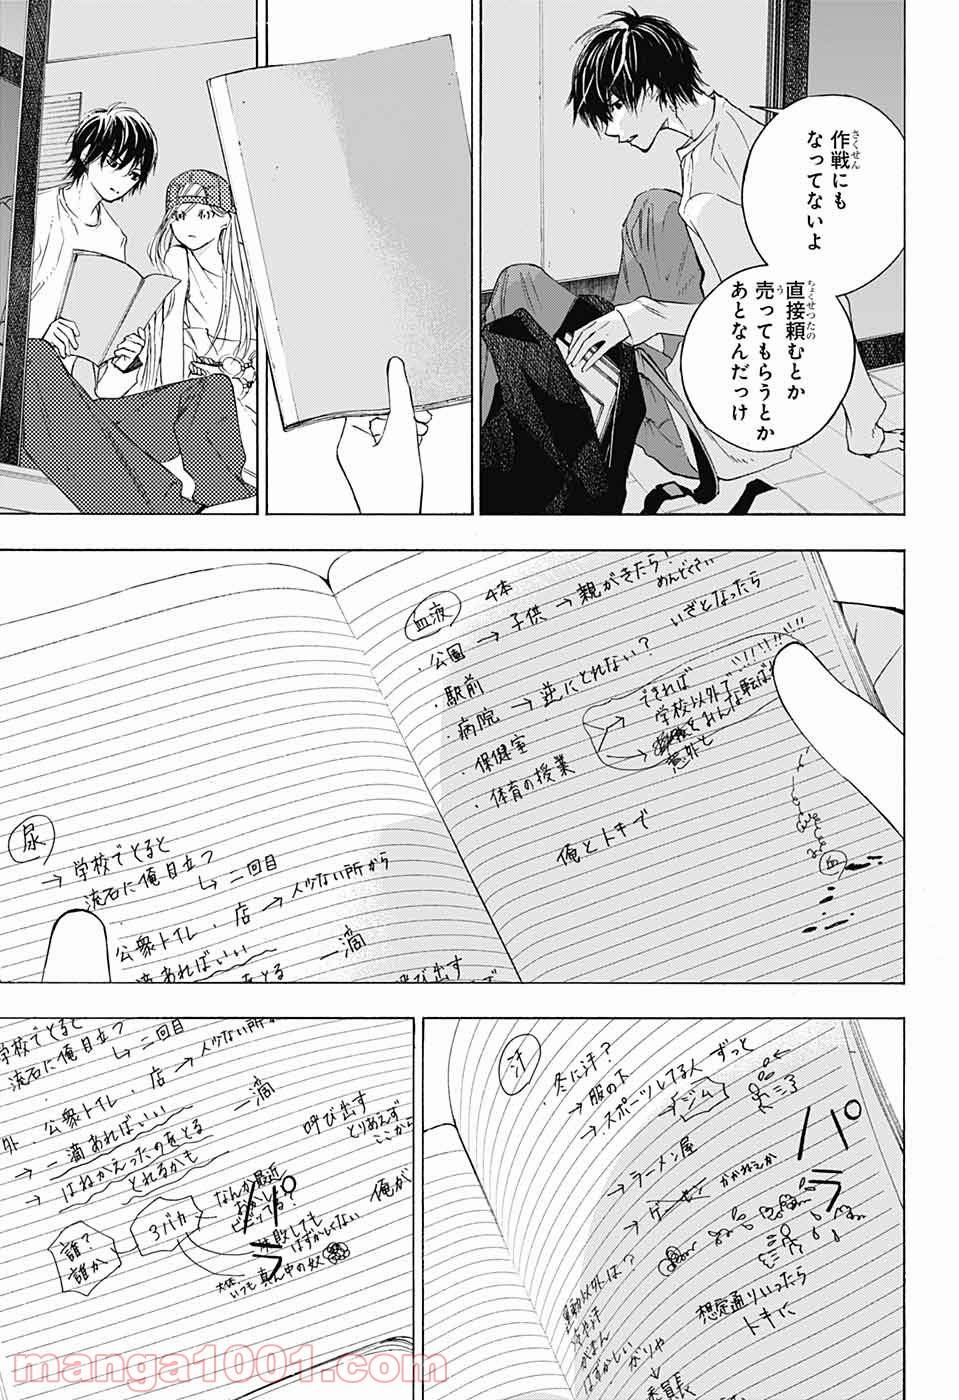 作戦にも
なってないよ
直接頼むとか
売ってもらうとか
あとなんだっけ
血液
4本
・公園→子供→親がきたら!
めんどくさい
・駅前
・病院→逆にとれない?
いざとなったら
・保健室
・体育の授業
できれば
学校以外で
みんな転ばす
意外と
俺とトキで
血
尿
→学校でとると
流石に俺目立つ
↳二回目
公衆トイレ・店→人少ない所から
滴あればいい
をとる
一滴
呼び出す
汗
・冬に汗?
→服の下
→スポーツしてる人 ずっと
→ジム
→ラーメン屋
→ゲーセン かがねえか
パ
ラ
運動以外は?
冷や汗
がまん
はずかしい
がりや
委員長
想定通りいったら
トキに
学校でとると
流石に俺目立つ
↳二回目
公衆トイレ・店→人少ない所
→一滴あればいい
一滴
→はねかえったのをとる
とれるかも
呼び出す
とりあえず
ここから
俺が
誰?
誰か
3バカ
なんか最近
ビビってる?
失敗しても
はずかしくない
大体
いつも真ん中の奴
パ
ラ
manga1001.com